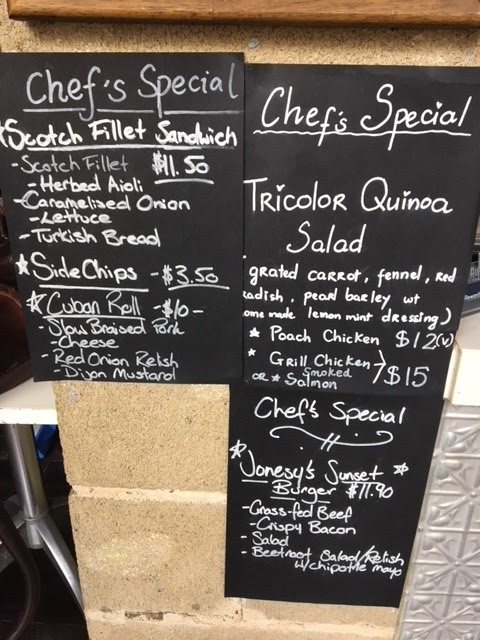 Chef's Special
Scotch Fillet Sandwich
- Scotch Fillet $11.50
- Herbed Aioli
- Caramelised Onion
- Lettuce
- Turkish Bread
Side Chips - $3.50
Cuban Roll - $10 -
- Slow Braised Pork
- Cheese
- Red Onion Relish
- Dijon Mustard
Chef's Special
Tricolor Quinoa
Salad
grated carrot, fennel, red
adish, pearl barley wt
ome made lemon mint dressing)
Poach Chicken $12(v)
Grill Chicken
or Smoked Salmon > $15
Chef's Special
Jonesy's Sunset
Burger $11.90
- Grass-fed Beef
- Crispy Bacon
- Salad
- Beetroot Salad/Relish
w/chipotle mayo